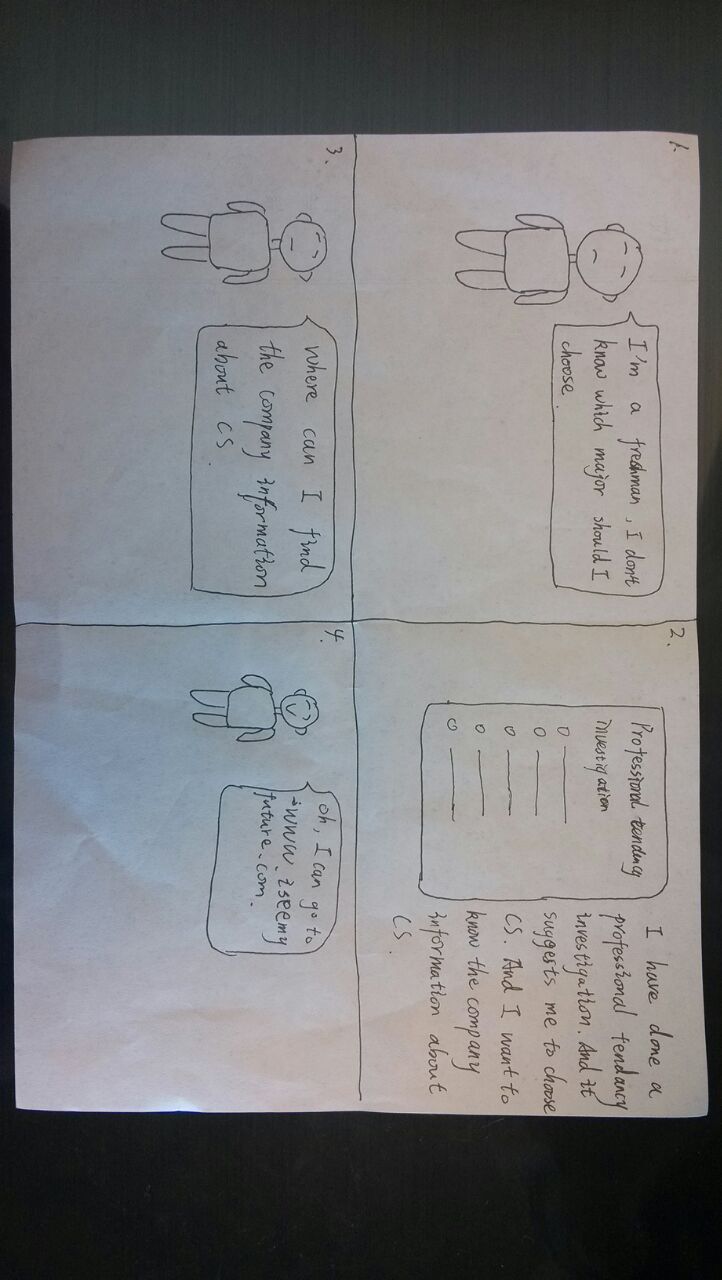 1.
I'm a freshman, I don't
know which major should I
choose.
2.
Professional tendency
investigation
I have done a
professional tendancy
investigation. And it
suggests me to choose
CS. And I want to
know the company
information about
CS.
3.
Where can I find
the company information
about CS.
4.
Oh, I can go to
www.iseemy
future.com.